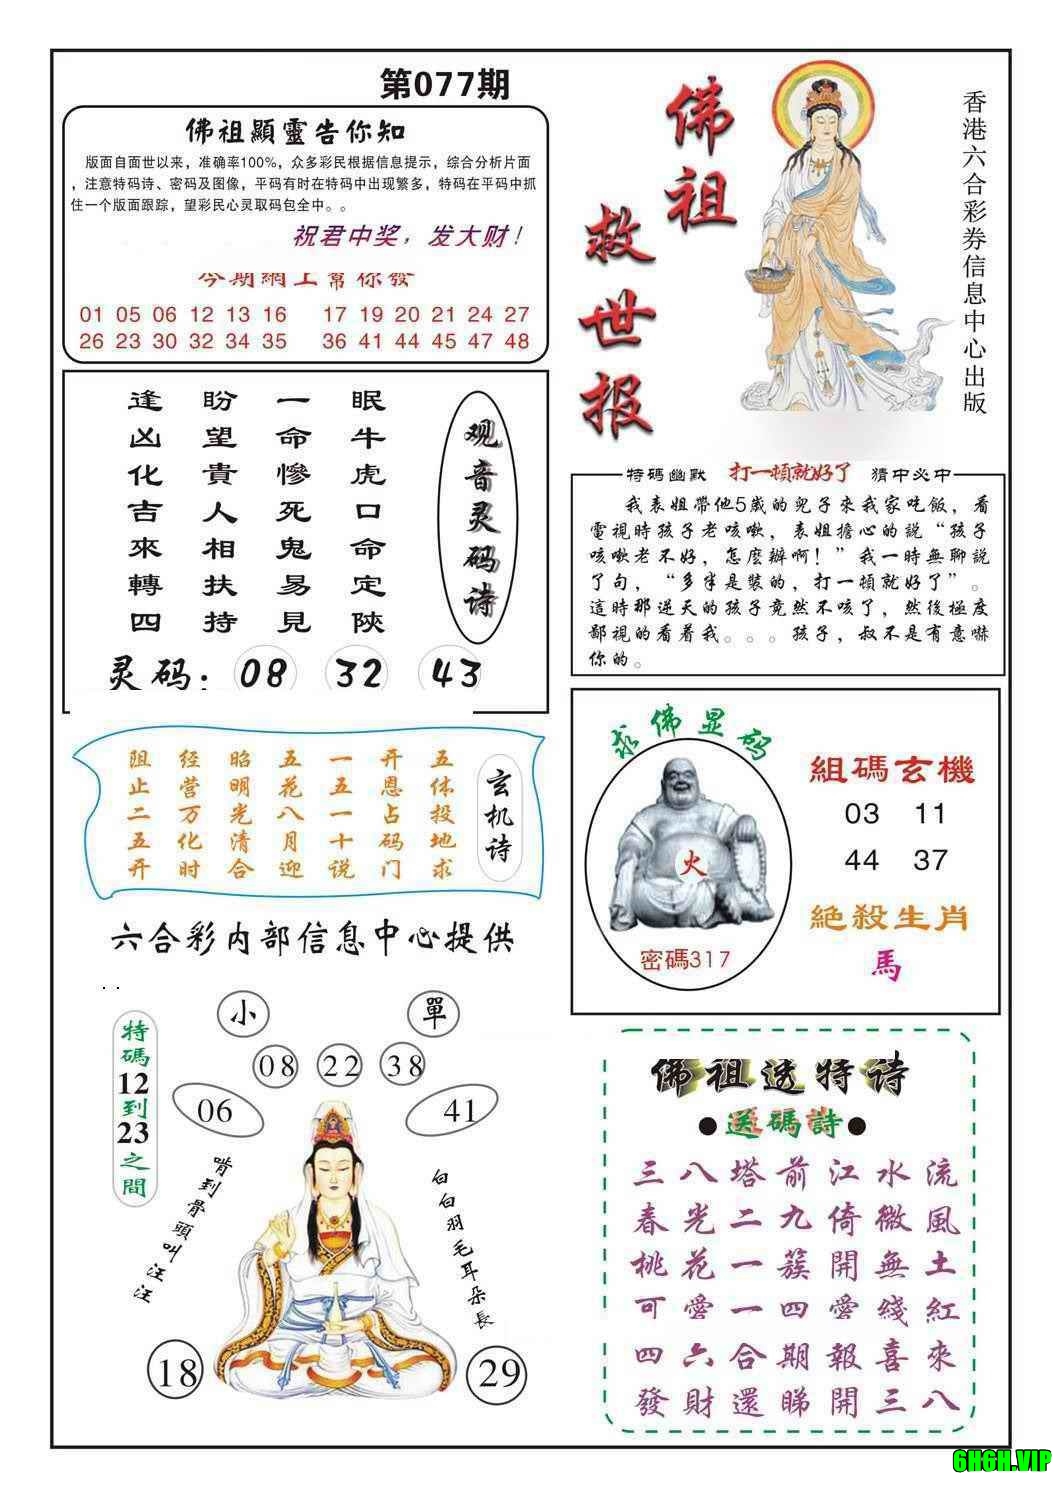 第077期
佛祖顯靈告你知
版面自面世以来，准确率100%，众多彩民根据信息提示，综合分析片面
，注意特码诗、密码及图像，平码有时在特码中出现繁多，特码在平码中抓
住一个版面跟踪，望彩民心灵取码包全中。。
祝君中奖，发大财！
今期網上幫你發
01 05 06 12 13 16 17 19 20 21 24 27
26 23 30 32 34 35 36 41 44 45 47 48
佛祖
救世报
香港六合彩券信息中心出版
逢盼一眠
凶望命牛
化貴慘虎
吉人死口
來相鬼命
轉扶易定
四持見陝
观音灵码诗
灵码：08 32 43
特碼幽默 打一頓就好了 猜中必中
我表姐帶他5歲的兒子來我家吃飯，看
電視時孩子老咳嗽，表姐擔心的説“孩子
咳嗽老不好，怎麽辦啊！”我一時無聊説
了句，“多半是裝的，打一頓就好了”。
這時那逆天的孩子竟然不咳了，然後極度
鄙視的看着我。。。孩子，叔不是有意嚇
你的。
阻经昭五一开五
止营明花五恩体
二万光八一占投
五化清月十码地
开时合迎说门求
玄机诗
六合彩内部信息中心提供
求佛显码
火
密碼317
組碼玄機
03 11
44 37
絕殺生肖
馬
小
單
08 22 38
06
41
特碼12到23之間
啃到骨頭叫汪汪
白白羽毛耳朵長
18
29
佛祖透特诗
●送碼詩●
三八塔前江水流
春光二九倚微風
桃花一簇開無土
可愛一四愛綫紅
四六合期報喜來
發財還睇開三八
6H6H.VIP